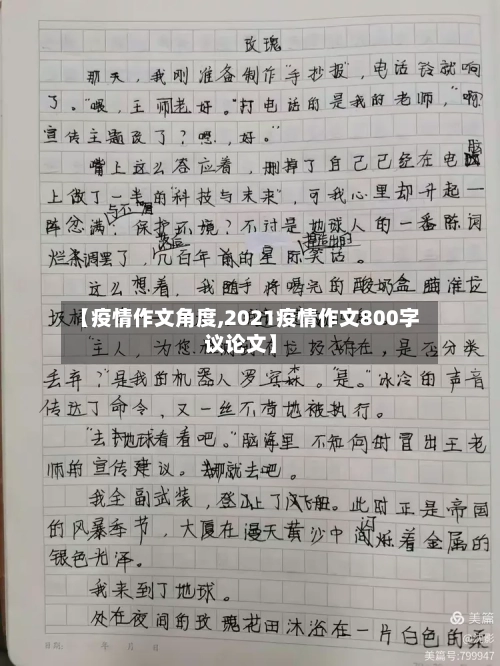 玫瑰
那天,我刚准备制作“手抄报”,电话铃就响
了。“喂,王师老好。”打电话的是我的老师,“啊
宣传主题改了?嗯,好。”
嘴上这么答应着,删掉了自己已经在电脑
上做了一半的“科技与未来”,可我心里却升起一
阵忿满与不屑:保护环境?不过是地球人的一番陈词
滥调罢了,几百年前的星际笑话。
这么想着,我随手将喝完的酸奶盒瞄准垃
圾桶
【疫情作文角度,2021疫情作文800字
议论文】
“主人,为您 存在,是否分类
丢弃?”是我的机器人罗宾森。“是。”冰冷的声音
传达了命令,又一丝不苟地被执行。
“去地球看看吧。”脑海里不知何时冒出王老
师的宣传建议。那就去吧。
我全副武装,登上了风飞船。此时正是帝国
的风暴季节,大厦在漫天黄沙中闪烁着金属的
银色光泽。
我来到了地球。
处在夜间的玫瑰花田沐浴在一片白色的
日期: 年 月 日
美篇
美篇号:799947